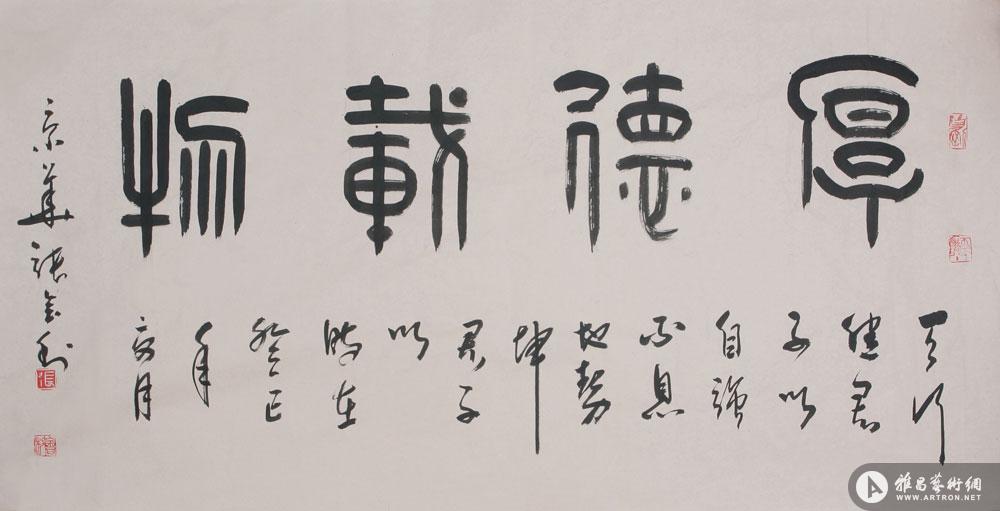 厚德載物
天行
健君
子以
自強
不息
地勢
坤
君子
以
時在
癸巳
年
夏月
京華張金利
雅昌藝術網
WWW.ARTRON.NET